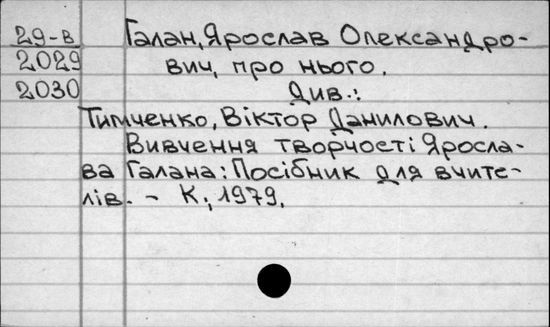 29-в Галан, Ярослав Олександро-
2029 вич, про нього.
2030 Див.:
Тимченко, Віктор Данилович.
Вивчення творчості Яросла-
ва Галана: Посібник для вчите-
лів. – К., 1979.